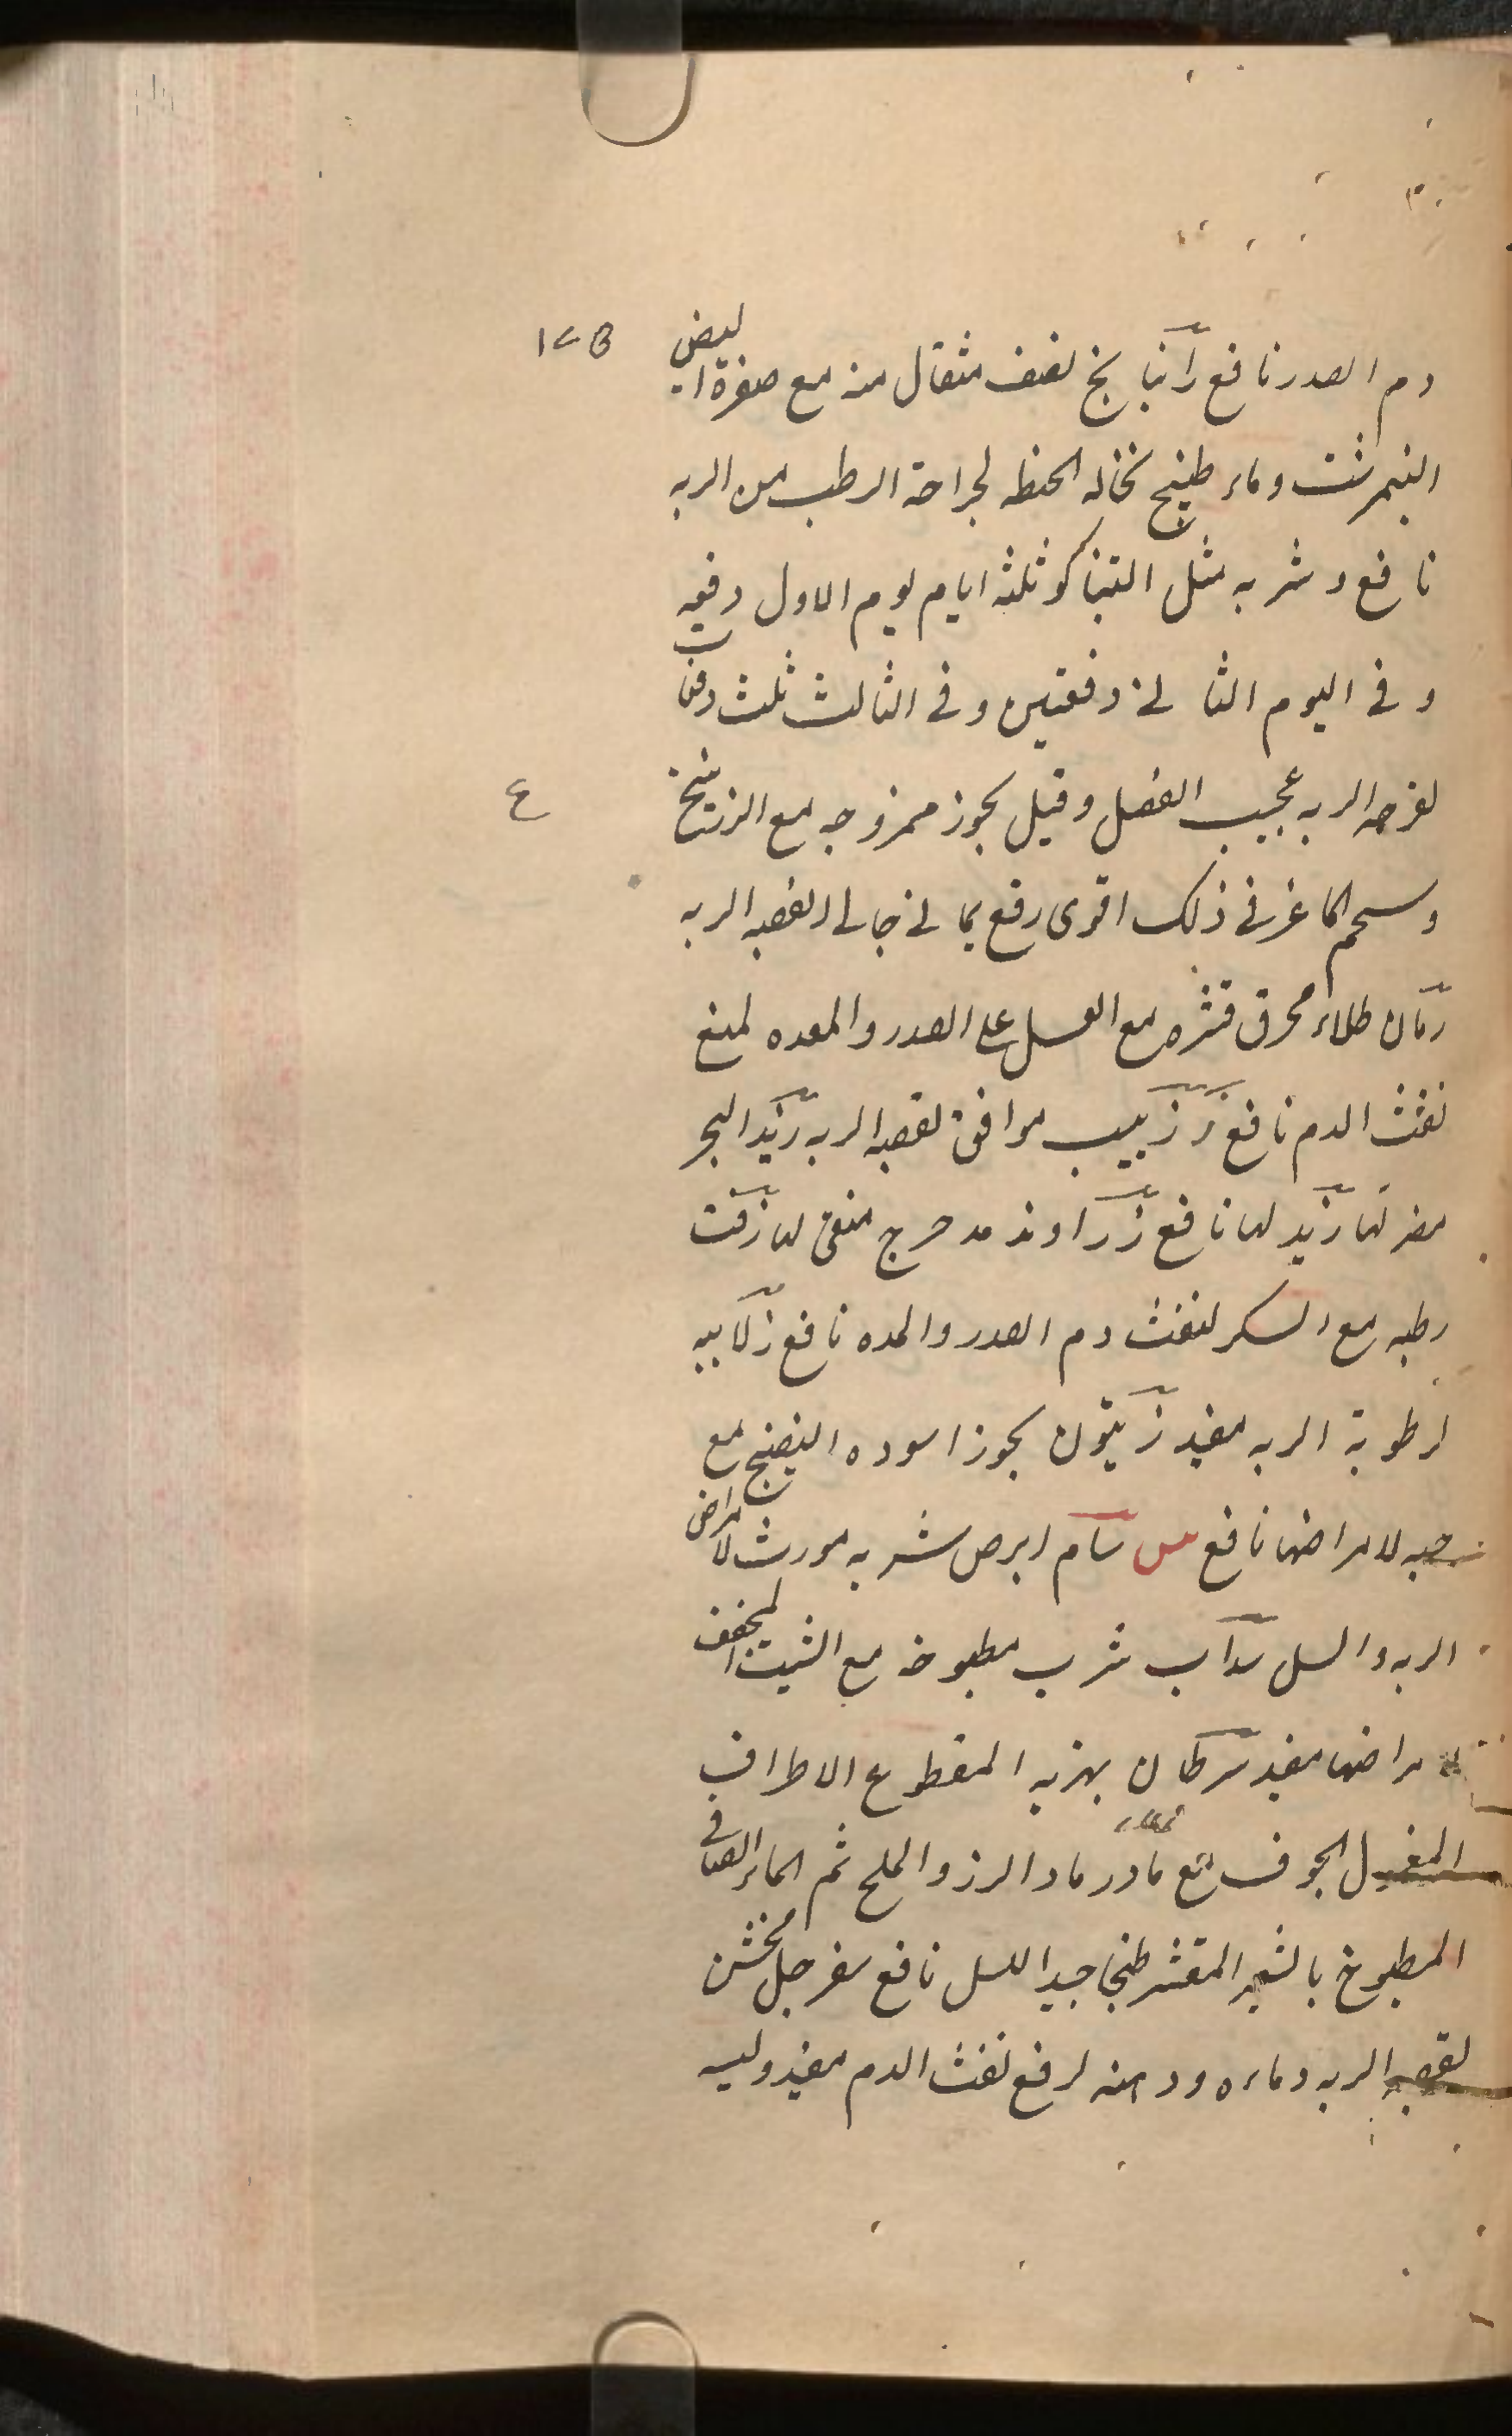 ١٢٥
دم الصدر نافع راتيانج نصف مثقال منه مع صفرة البيض
النيمرشت وماء طبيخ نخاله الحنطه لجراحة الرطب من الريه
نافع وشربه مثل التنباكو ثلثه ايام يوم الاول دفعه
وفي اليوم الثاني دفعتين وفي الثالث ثلث دفعات
لقرحه الريه عجيب الفعل وقيل يجوز ممزوجه مع الزرنيخ
ع
وشحم الماعز في ذلك اقوى جالي لقصبه الريه
رمان طلاء محرق قشره مع العسل على الصدر والمعده لمنع
نفث الدم نافع ز زبيب موافق لقصبه الريه زبد البحر
مضر لها زبد لها نافع زراوند مدحرج منقى لها زفت
رطبه مع السكر لنفث دم الصدر والمده نافع زلابيه
لرطوبة الريه مفيد زيتون يجوز اسوده النضيج مع
حبه لامراضها نافع س سام ابرص شربه مورث لامراض
الريه والسل سداب شرب مطبوخه مع الشبت المجفف
لامراضها مفيد سرطان نهريه المقطوع الاطراف
المغسل الجوف مع ماء رماد الرز والملح ثم الماء الصافي
المطبوخ بالشعير المقشر طبخا جيدا للسل نافع سفرجل مخشن
لقصبه الريه وماءه ودهنه لرفع نفث الدم مفيد وليه